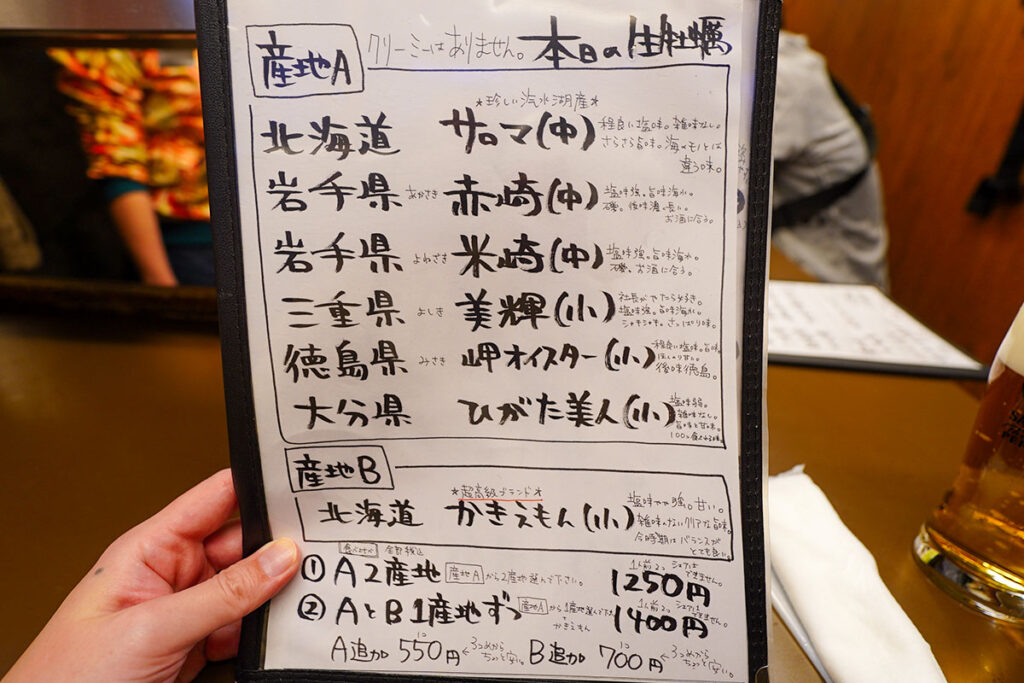 クリーミーはありません。 本日の生牡蠣
産地A
＊珍しい汽水湖産＊
北海道 サロマ(中) 程良い塩味。雑味なし。
さらさら旨味。海のモノとは
違う味。
岩手県 あかさき 赤崎(中) 塩味強。旨味濃い。
磯。後味濃い長い。
お酒に合う。
岩手県 よねさき 米崎(中) 塩味強。旨味濃い。
磯。お酒に合う。
三重県 よしき 美輝(小) 社長がでたら好き。
塩味強。旨味濃い。
シャキシャキ。さっぱり味。
徳島県 みさき 岬オイスター(小) 程良い塩味。旨味。
後味徳島。
大分県 ひがた美人(小) 塩味弱。
雑味なし。
旨味と甘味。
産地B
＊超高級ブランド＊
北海道 かきえもん(小) 塩味やや強。甘い。
雑味のないクリアな旨味。
今時期はバランスが
とても良い。
食べ比べ 全部税込
① A2産地 産地Aから2産地選んで下さい。 1人前2つ シェアはできません。 1250円
② AとB1産地ずつ 産地Aから1産地選んで下さい + かきえもん 1人前2つ シェアはできません。 1400円
A追加 1コ 550円 ←3つめからちょっと安い。 B追加 1コ 700円 ←3つめからちょっと安い。